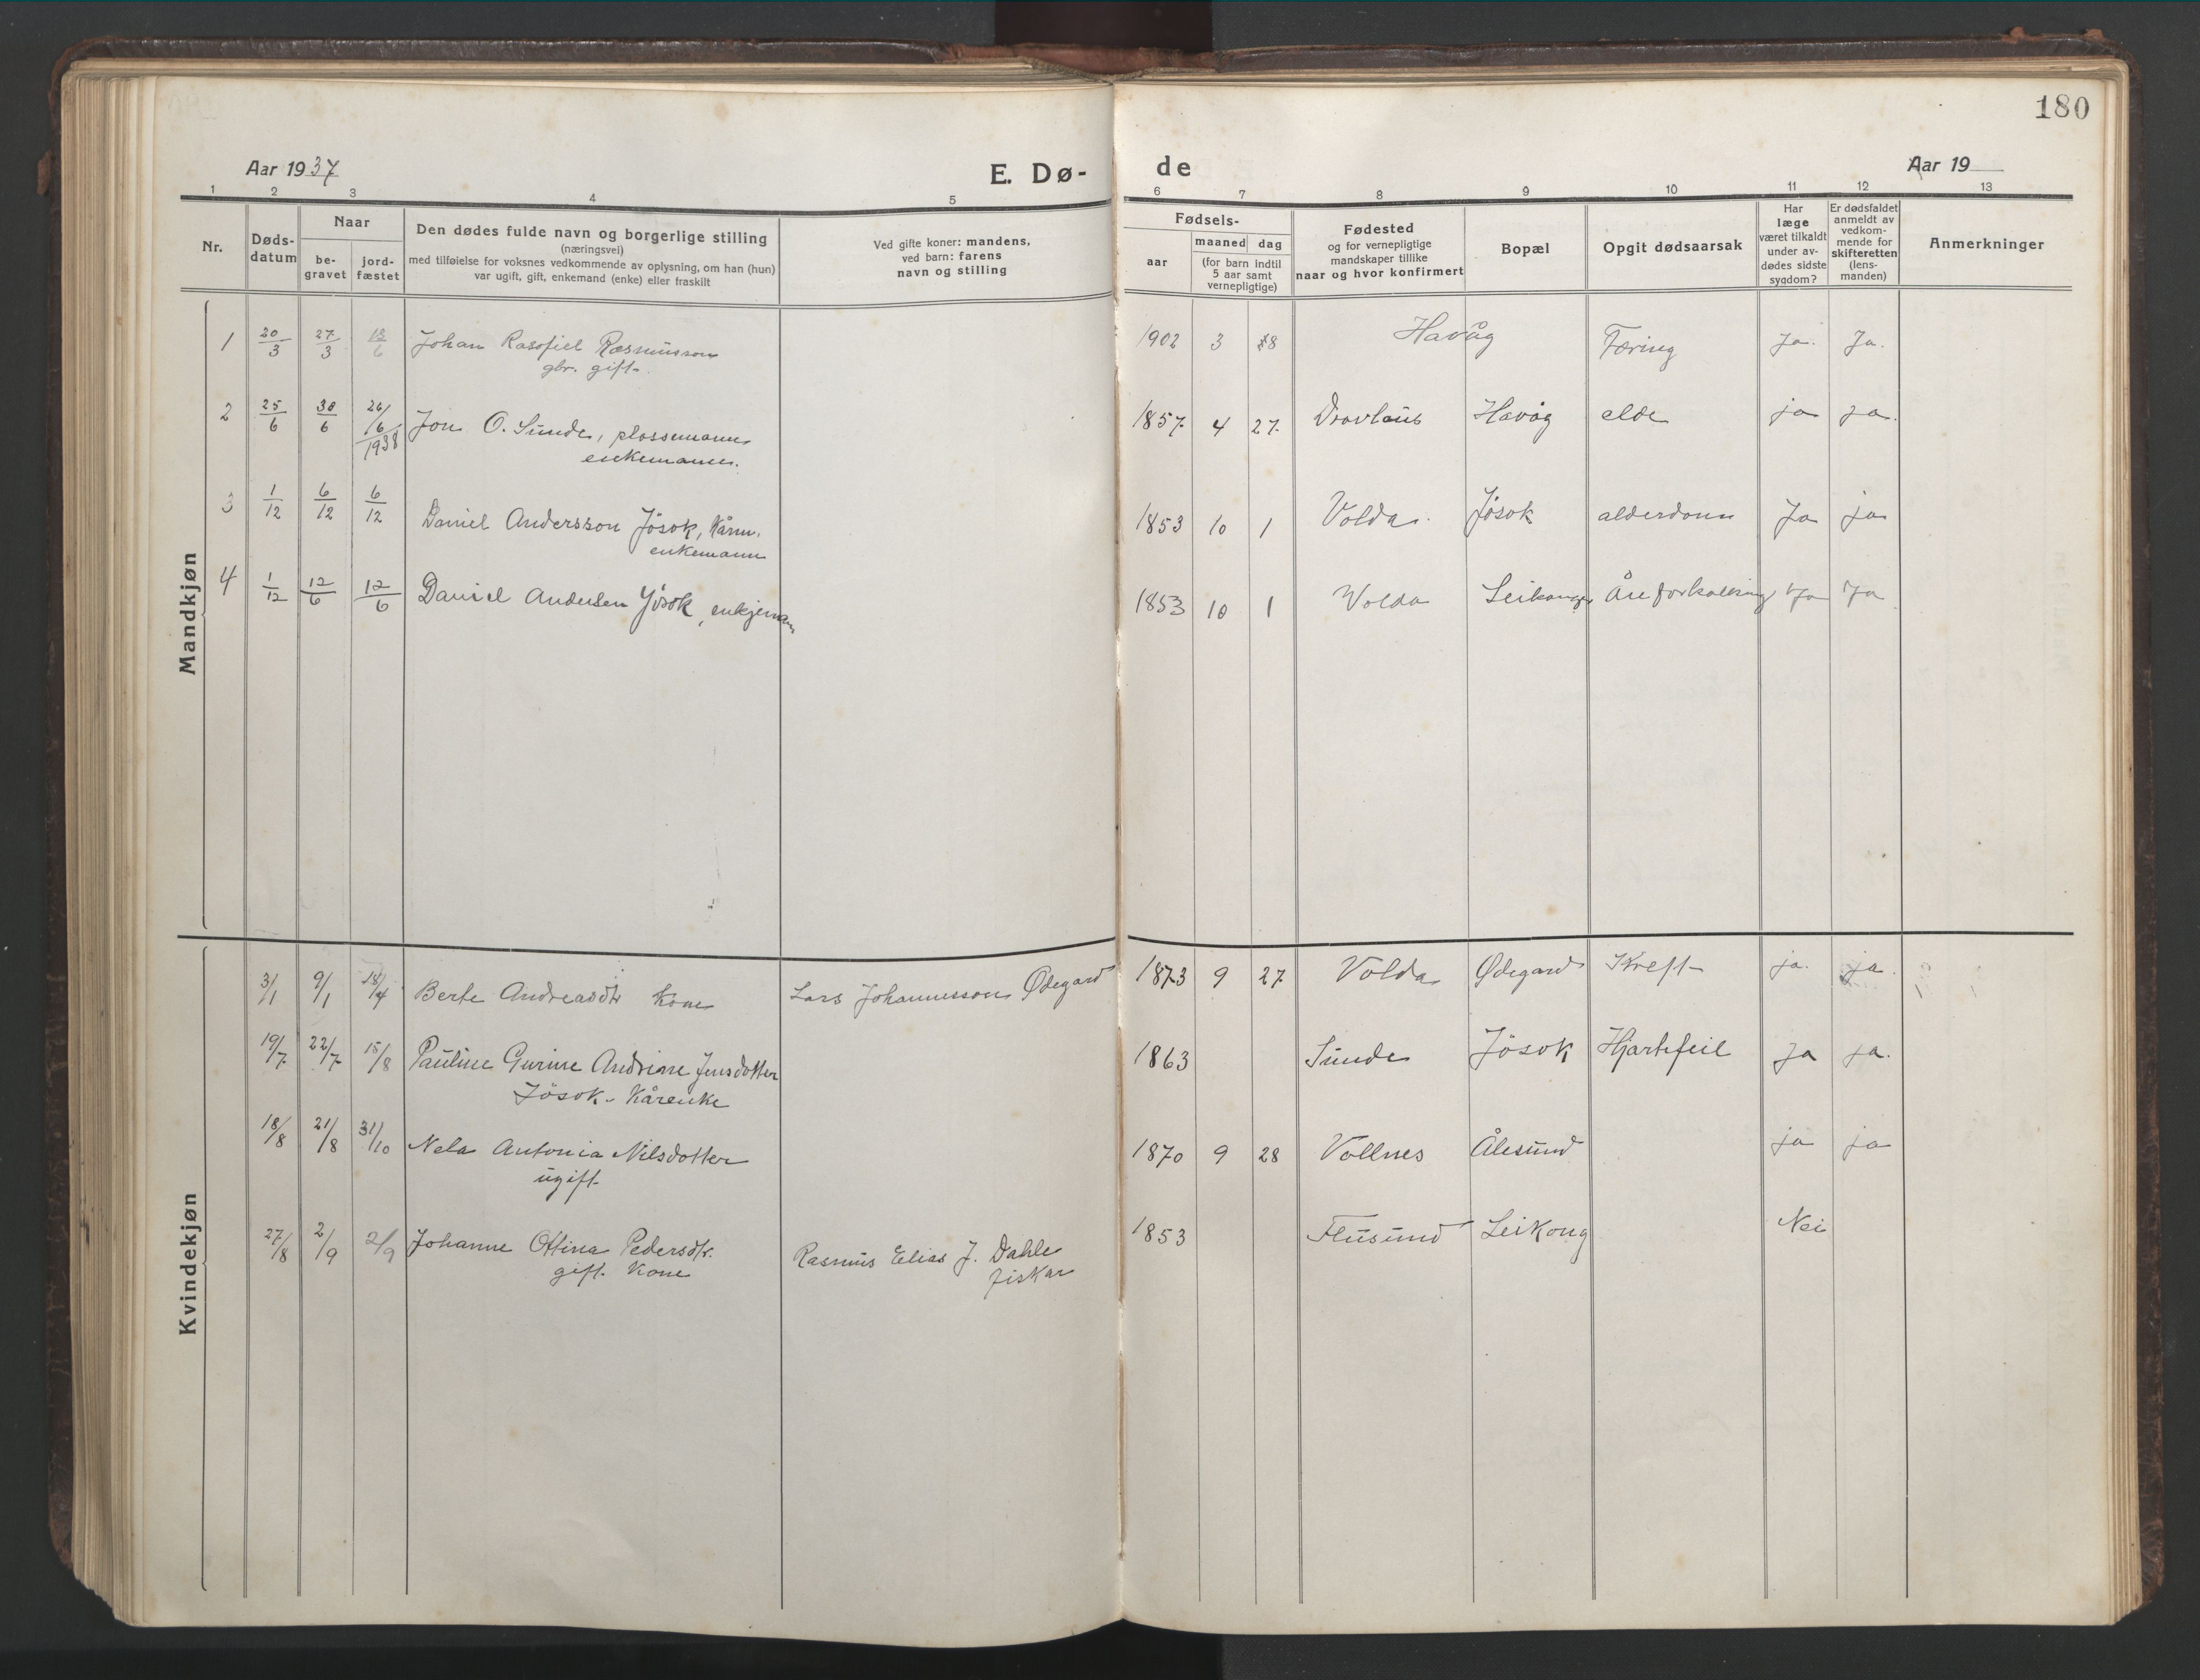 180
Aar 1937
E. Dø-
de
Aar 19
1 2 3 4 5 6 7 8 9 10 11 12 13
Nr.
Døds-
datum
Naar
be-
gravet
jord-
fæstet
Den dødes fulde navn og borgerlige stilling
(næringsvei)
med tilføielse for voksnes vedkommende av oplysning, om han (hun)
var ugift, gift, enkemand (enke) eller fraskilt
Ved gifte koner: mandens,
ved barn: farens
navn og stilling
Fødsels-
aar
maaned dag
(for barn indtil
5 aar samt
vernepligtige)
Fødested
og for vernepligtige
mandskaper tillike
naar og hvor konfirmert
Bopæl
Opgit dødsaarsak
Har
læge
været tilkaldt
under av-
dødes sidste
sygdom?
Er dødsfaldet
anmeldt av
vedkom-
mende for
skifteretten
(lens-
manden)
Anmerkninger
Mandkjøn
1 20/3 27/3 Johan Rasmusson 1902 3 8 Havåg Tæring Ja. Ja.
gbr. gift.
2 25/6 30/6 26/6 1938 Jon O. Sunde, plassemann 1857 4 27 Dravlaus Havåg elde ja ja.
enkemann.
3 1/12 6/12 6/12 Daniel Andersson Jøsok, Kårm. 1853 10 1 Volda. Jøsok alderdom Ja ja
enkemann
4 1/12 12/6 12/6 Daniel Andersen Jøsok, enkjeman 1853 10 1 Volda Leikanger Åreforkalkning Ja Ja
Kvindekjøn
3/1 9/1 18/4 Berte Andreasdtr Kone Lars Johannesson Ødegard 1873 9 27 Volda Ødegard Kreft ja. ja.
19/7 22/7 15/8 Pauline Gurine Andrine Jensdotter 1863 Sunde Jøsok Hjartefeil Ja ja.
Jøsok - Kårenke
18/8 21/8 31/10 Nela Antonia Nilsdotter 1870 9 28 Vollnes Ålesund ja ja
ugift
27/8 2/9 2/9 Johanne Ottina Pedersdtr. Rasmus Elias J. Dahle 1853 Flusund Leikong Nei
gift. Kone fiskar